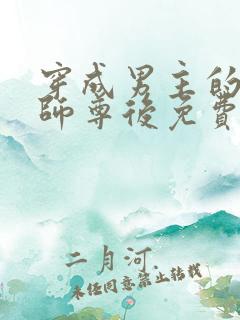 穿成男主的
師尊後免費
二月河
未经同意禁止转载